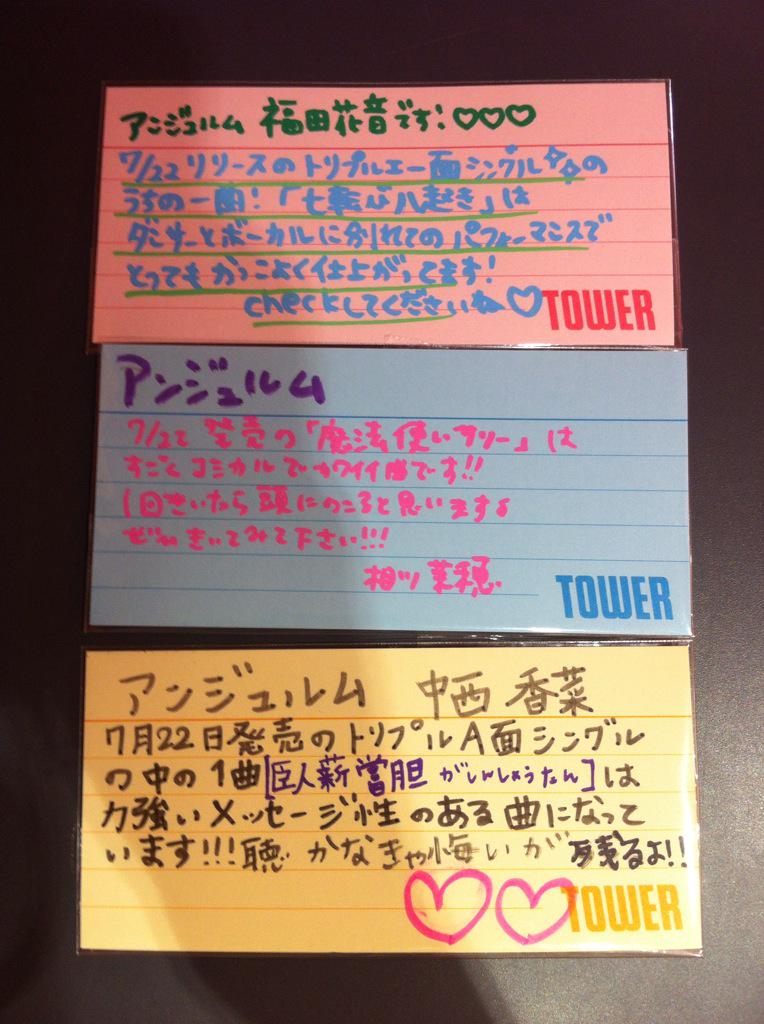 アンジュルム 福田花音です! ♡♡♡
7/22リリースのトリプルエー面シングル✨の
うちの一曲!「七転び八起き」は
ダンサーとボーカルに分れてのパフォーマンスで
とってもかっこよく仕上がってます!
checkしてくださいね♡
TOWER
アンジュルム
7/22 発売の「魔法使いサリー」は
すごくコミカルでカワイイ曲です!!
1回きいたら頭にのこると思いますよ
ぜひきいてみて下さい!!!
相川茉穂
TOWER
アンジュルム 中西香菜
7月22日発売のトリプルA面シングル
の中の1曲[臥薪嘗胆 がしんしょうたん]は
力強いメッセージ性のある曲になって
います!!!聴かなきゃ悔いが残るよ!!
♡♡TOWER